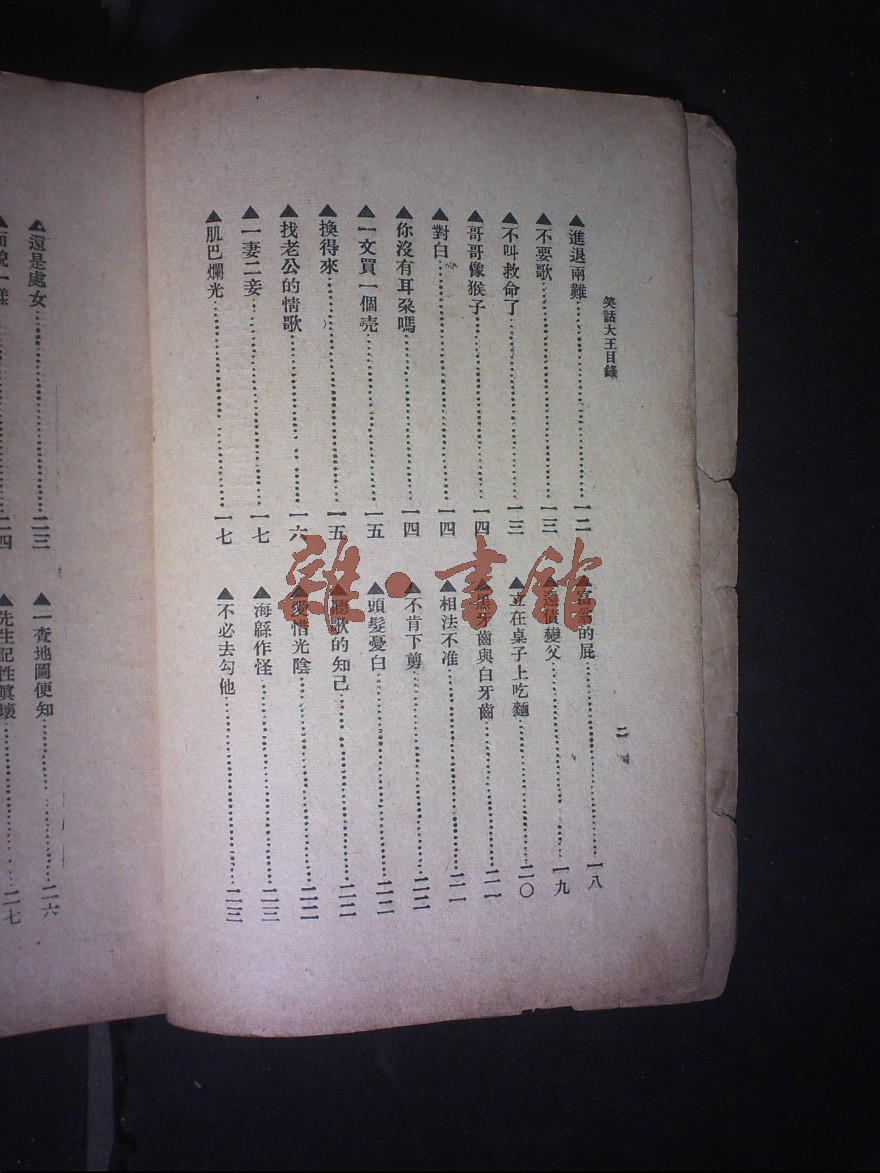 笑話大王目錄
二
▲進退兩難…………一二
▲不要歌…………一三
▲不叫救命了…………一三
▲哥哥像猴子…………一四
▲對白…………一四
▲你沒有耳朶嗎…………一四
▲一文買一個売…………一五
▲換得來…………一五
▲找老公的情歌…………一六
▲一妻二妾…………一七
▲肌巴爛光…………一七
▲富翁的屁…………一八
▲還債變父…………一九
▲立在桌子上吃麵…………二〇
▲黑牙齒與白牙齒…………二一
▲相法不准…………二一
▲不肯下剪…………二二
▲頭髮憂白…………二二
▲聽歌的知己…………二二
▲愛惜光陰…………二二
▲海縣作怪…………二三
▲不必去勾他…………二三
▲還是處女…………二三
▲面貌一樣…………二四
▲一查地圖便知…………二六
▲先生記性眞壞…………二七
雜·書館